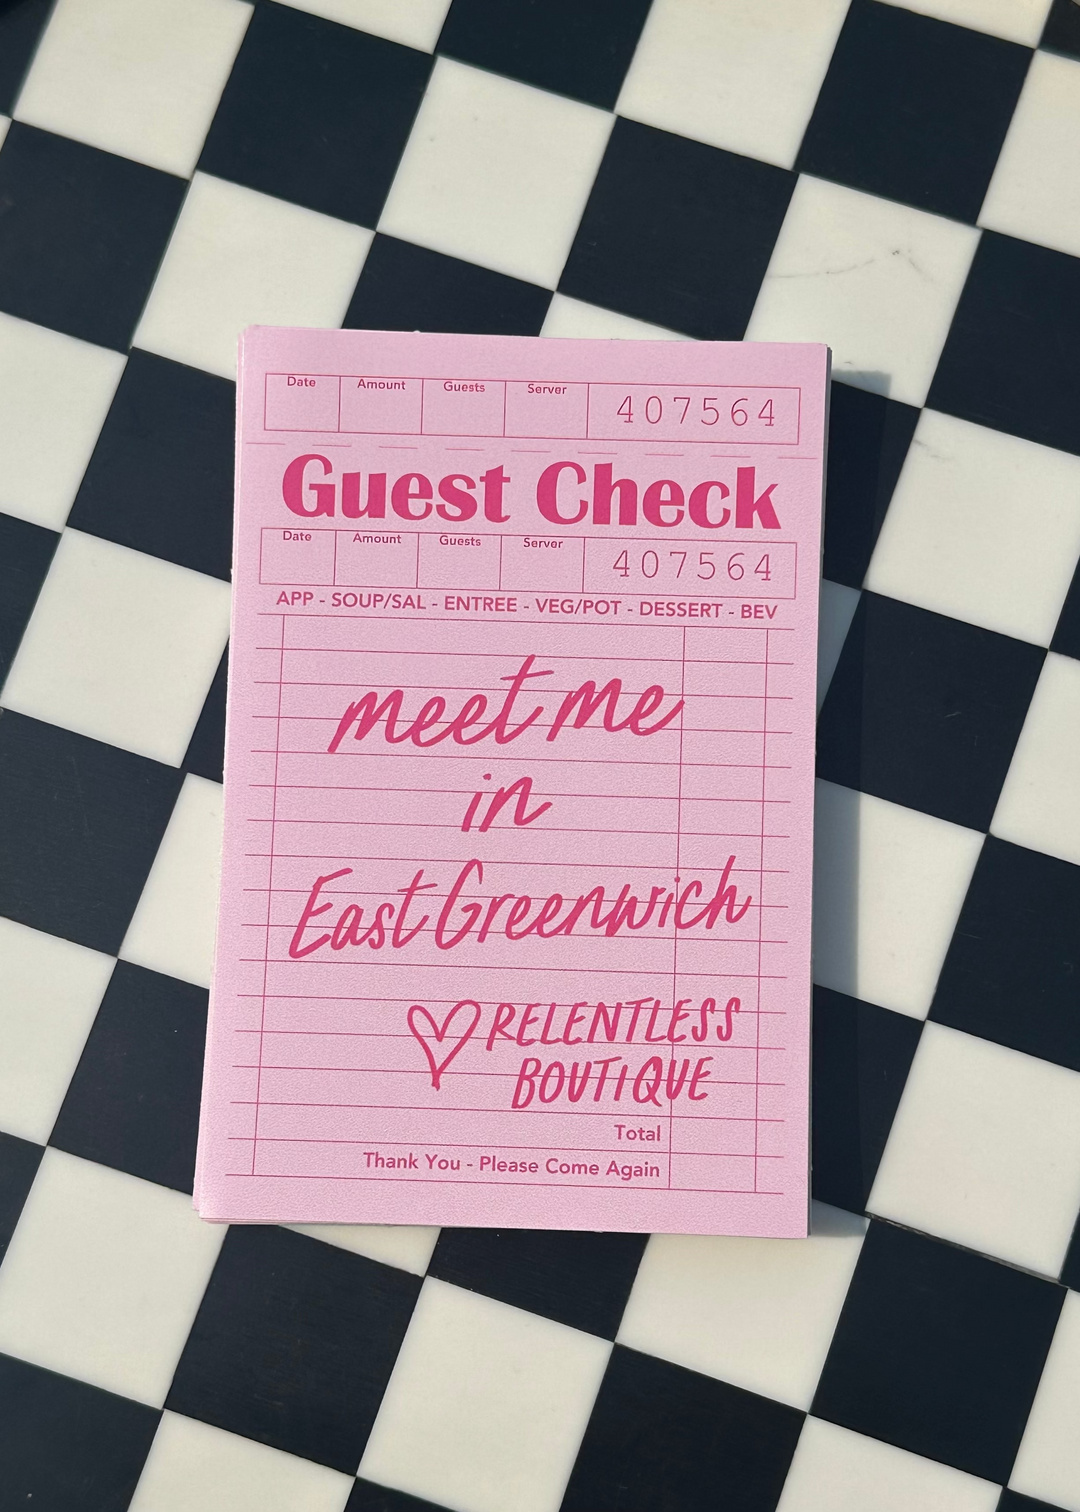 Date Amount Guests Server 407564
Guest Check
Date Amount Guests Server 407564
APP - SOUP/SAL - ENTREE - VEG/POT - DESSERT - BEV
meet me
in
East Greenwich
RELENTLESS
BOUTIQUE
Total
Thank You - Please Come Again